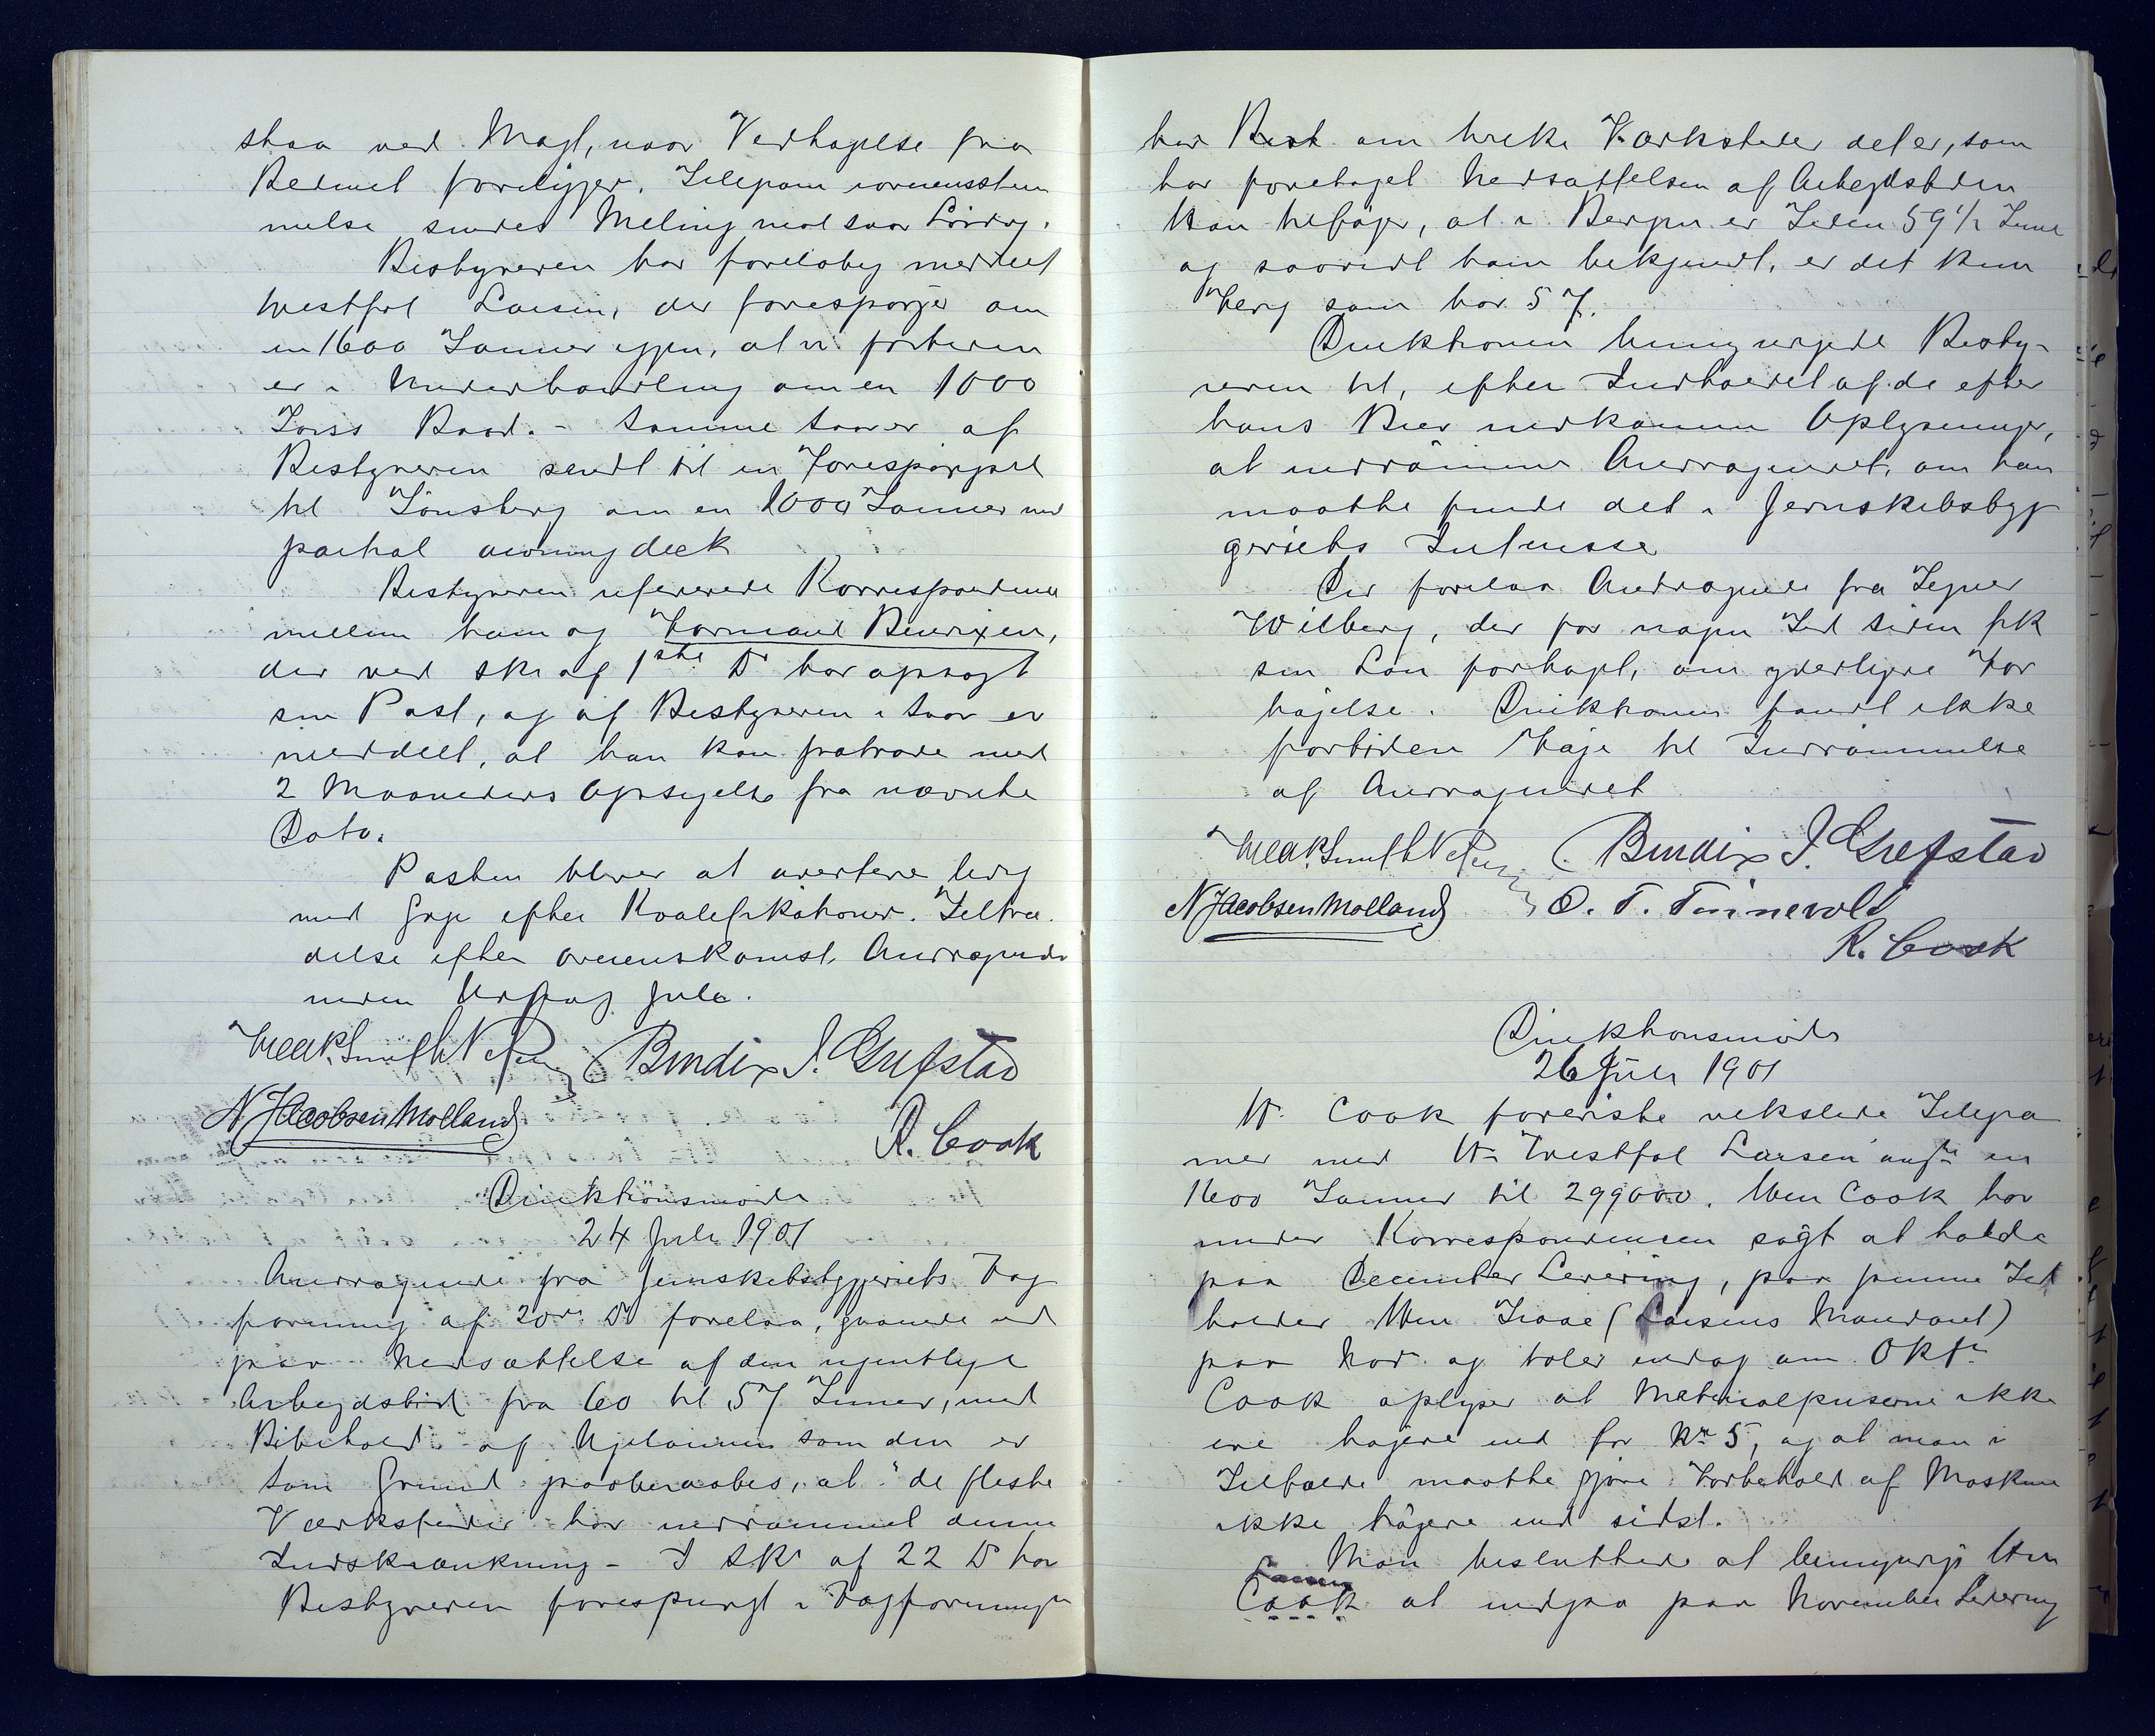 staa ved Magt, naar Vedtagelse fra
foreligger. Telegram overensstem
melse sendes Meling med Svar Lördag.
Bestyreren har foreløbig meddelt
Westfal Larsen, der forespørger om
en 1600 Tonner igjen, at vi forteren
er i Underhandling om en 1000
Tons Baad. - Samme Svar er af
Bestyreren sendt til en Forespørgsel
til Tönsberg om en 1000 Tonner med
partial awning deck
Bestyreren refererede Korrespondence
mellem ham og Formand Bendixen,
der ved skr af 1ste Ds har opsagt
sin Post, og af Bestyreren i Svar er
meddelt, at han kan fratræde med
2 Maaneders Opsigelse fra nævnte
Dato.
Posten bliver at avertere ledig
med Gage efter Kvalifikationer. Tiltræ
delse efter overenskomst, Andragende
inden Udgang Juli.
Bendix J. Grefstad
N Jacobsen Molland
R. Cook
Direktionsmöde
24 Juli 1901
Andragende fra Jernskibsbyggeriets Fag
forening af 20de Ds forelaa, gaaende ud
paa Nedsættelse af den ugentlige
Arbejdstid fra 60 til 57 Timer, med
Bibehold af Ugelönnen som den er
Som Grund paaberaabes, at "de fleste
Værksteder har indrømmet denne
Indskrænkning - I Skr af 22 Ds har
Bestyreren forespurgt i Fagforeningen
har Bedt om hvilke Værksteder det er, som
har foretaget Nedsættelsen af Arbejdstiden
Kan tilføje, at i Bergen er Tiden 59 1/2 Time
og saavidt ham bekjendt, er det kun
som har 57.
Direktionen bemyndigede Besty-
reren til, efter Indholdet af de efter
hans Brev indkomne Oplysninger,
at indrömme Andragendet, om han
maatte finde det i Jernskibsbyg
geriets Interesse
Der forelaa Andragende fra Tegner
Wilberg, der for nogen Tid siden fik
sin Løn forhøjet, om yderligere For
højelse. Direktionen fandt ikke
fortiden Föje til Indrömmelse
af Andragendet
Bendix J. Grefstad
N Jacobsen Molland O. T. Tönnevold
R. Cook
Direktionsmöde
26 Juli 1901
Hr. Cook foreviste vekslede Telegra
mer med Hr Westfal Larsen angde en
1600 Tonner til 299000. Men Cook har
under Korrespondencen søgt at holde
paa December Levering, paa samme Tid
holder Men (Larsens Mandant)
paa Novr. og taler endog om Oktr
Cook oplyser at Materialpriserne ikke
ere højere end for No 5, og at man i
Tilfælde maatte gjøre Forbehold af Maskine
ikke højere end sidst.
Man besluttede at bemyndige Hr
Cook at indgaa paa November Levering